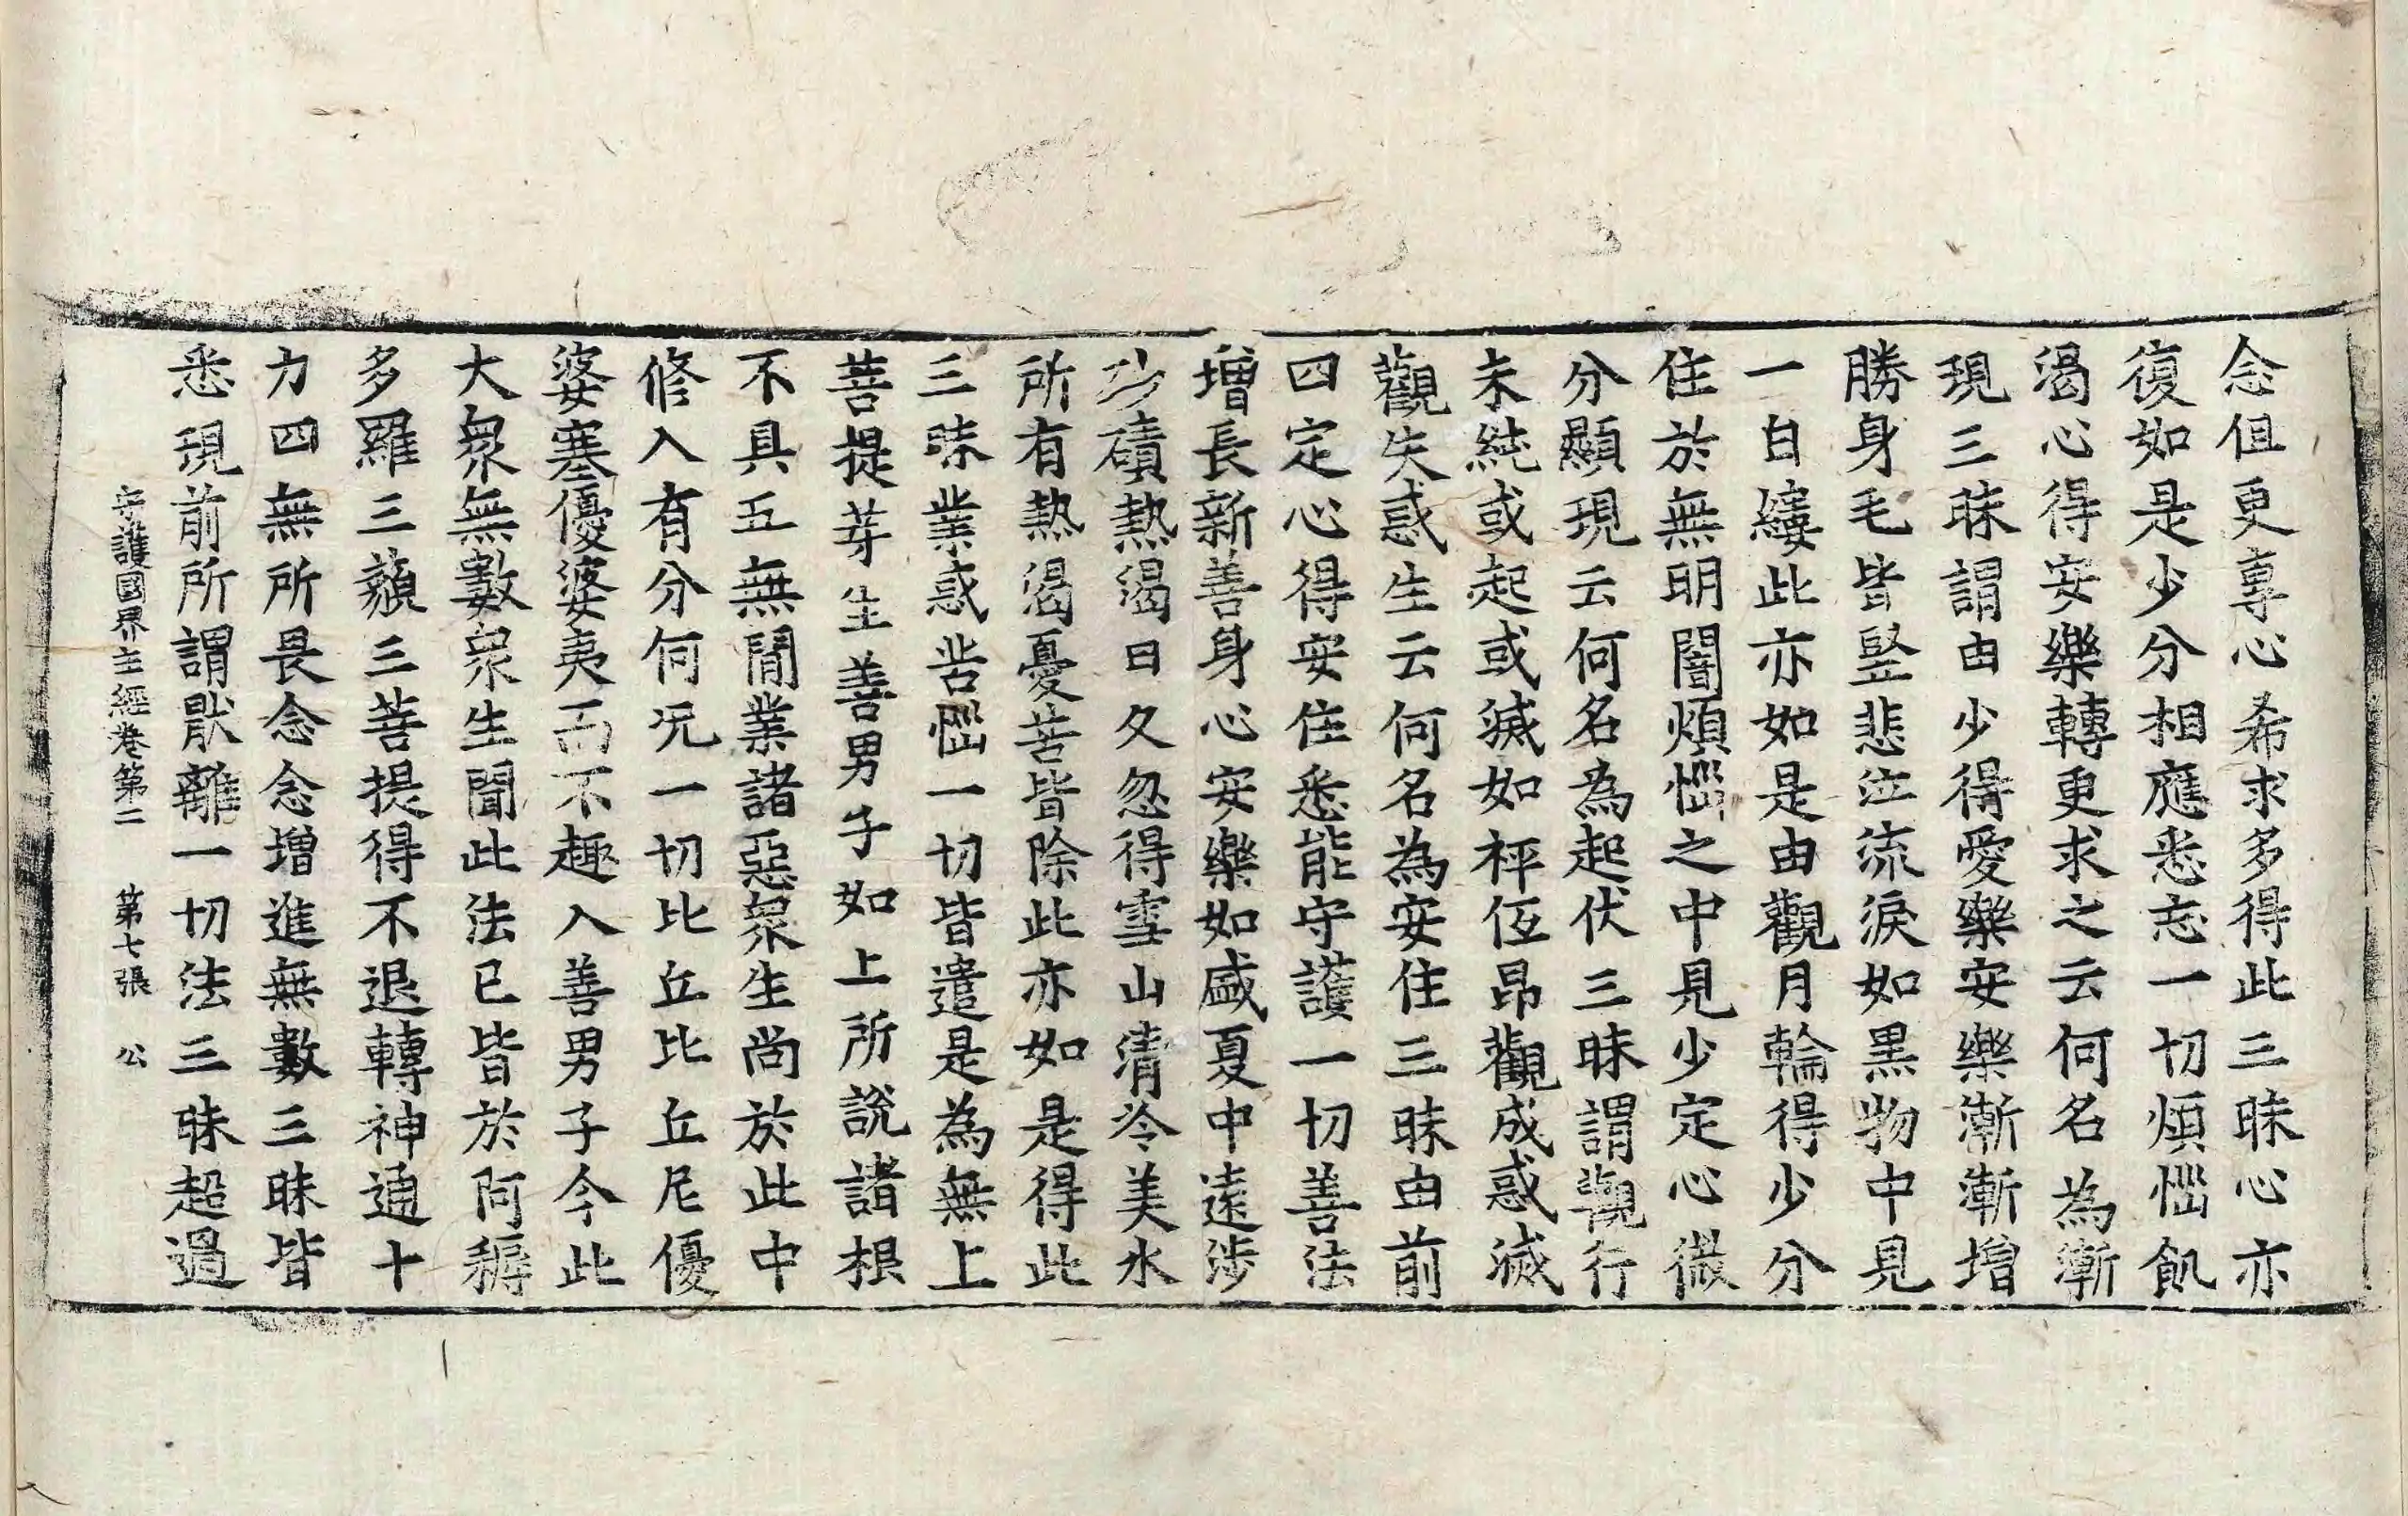 念但更專心希求多得此三昧心亦
復如是少分相應悉忘一切煩惱飢
渴心得安樂轉更求之云何名為漸
現三昧謂由少得愛樂安樂漸漸增
勝身毛皆竪悲泣流淚如黒物中見
一白縷此亦如是由觀月輪得少分
住於無明闇煩惱之中見少定心微
分顯現云何名為起伏三昧謂觀行
未純或起或滅如秤伍昂觀成惑滅
觀失惑生云何名為安住三昧由前
四定心得安住悉能守護一切善法
增長新善身心安樂如盛夏中遠涉
沙磧熱渴日久忽得雪山清冷美水
所有熱渴憂苦皆除此亦如是得此
三昧業惑苦惱一切皆遣是為無上
菩提芽生善男子如上所說諸根
不具五無閒業諸惡衆生尚於此中
修入有分何況一切比丘比丘尼優
婆塞優婆夷而不趣入善男子今此
大衆無數衆生聞此法已皆於阿耨
多羅三藐三菩提得不退轉神通十
力四無所畏念念增進無數三昧皆
悉現前所謂猒離一切法三昧超過
守護國界主經卷第二 第七張 公